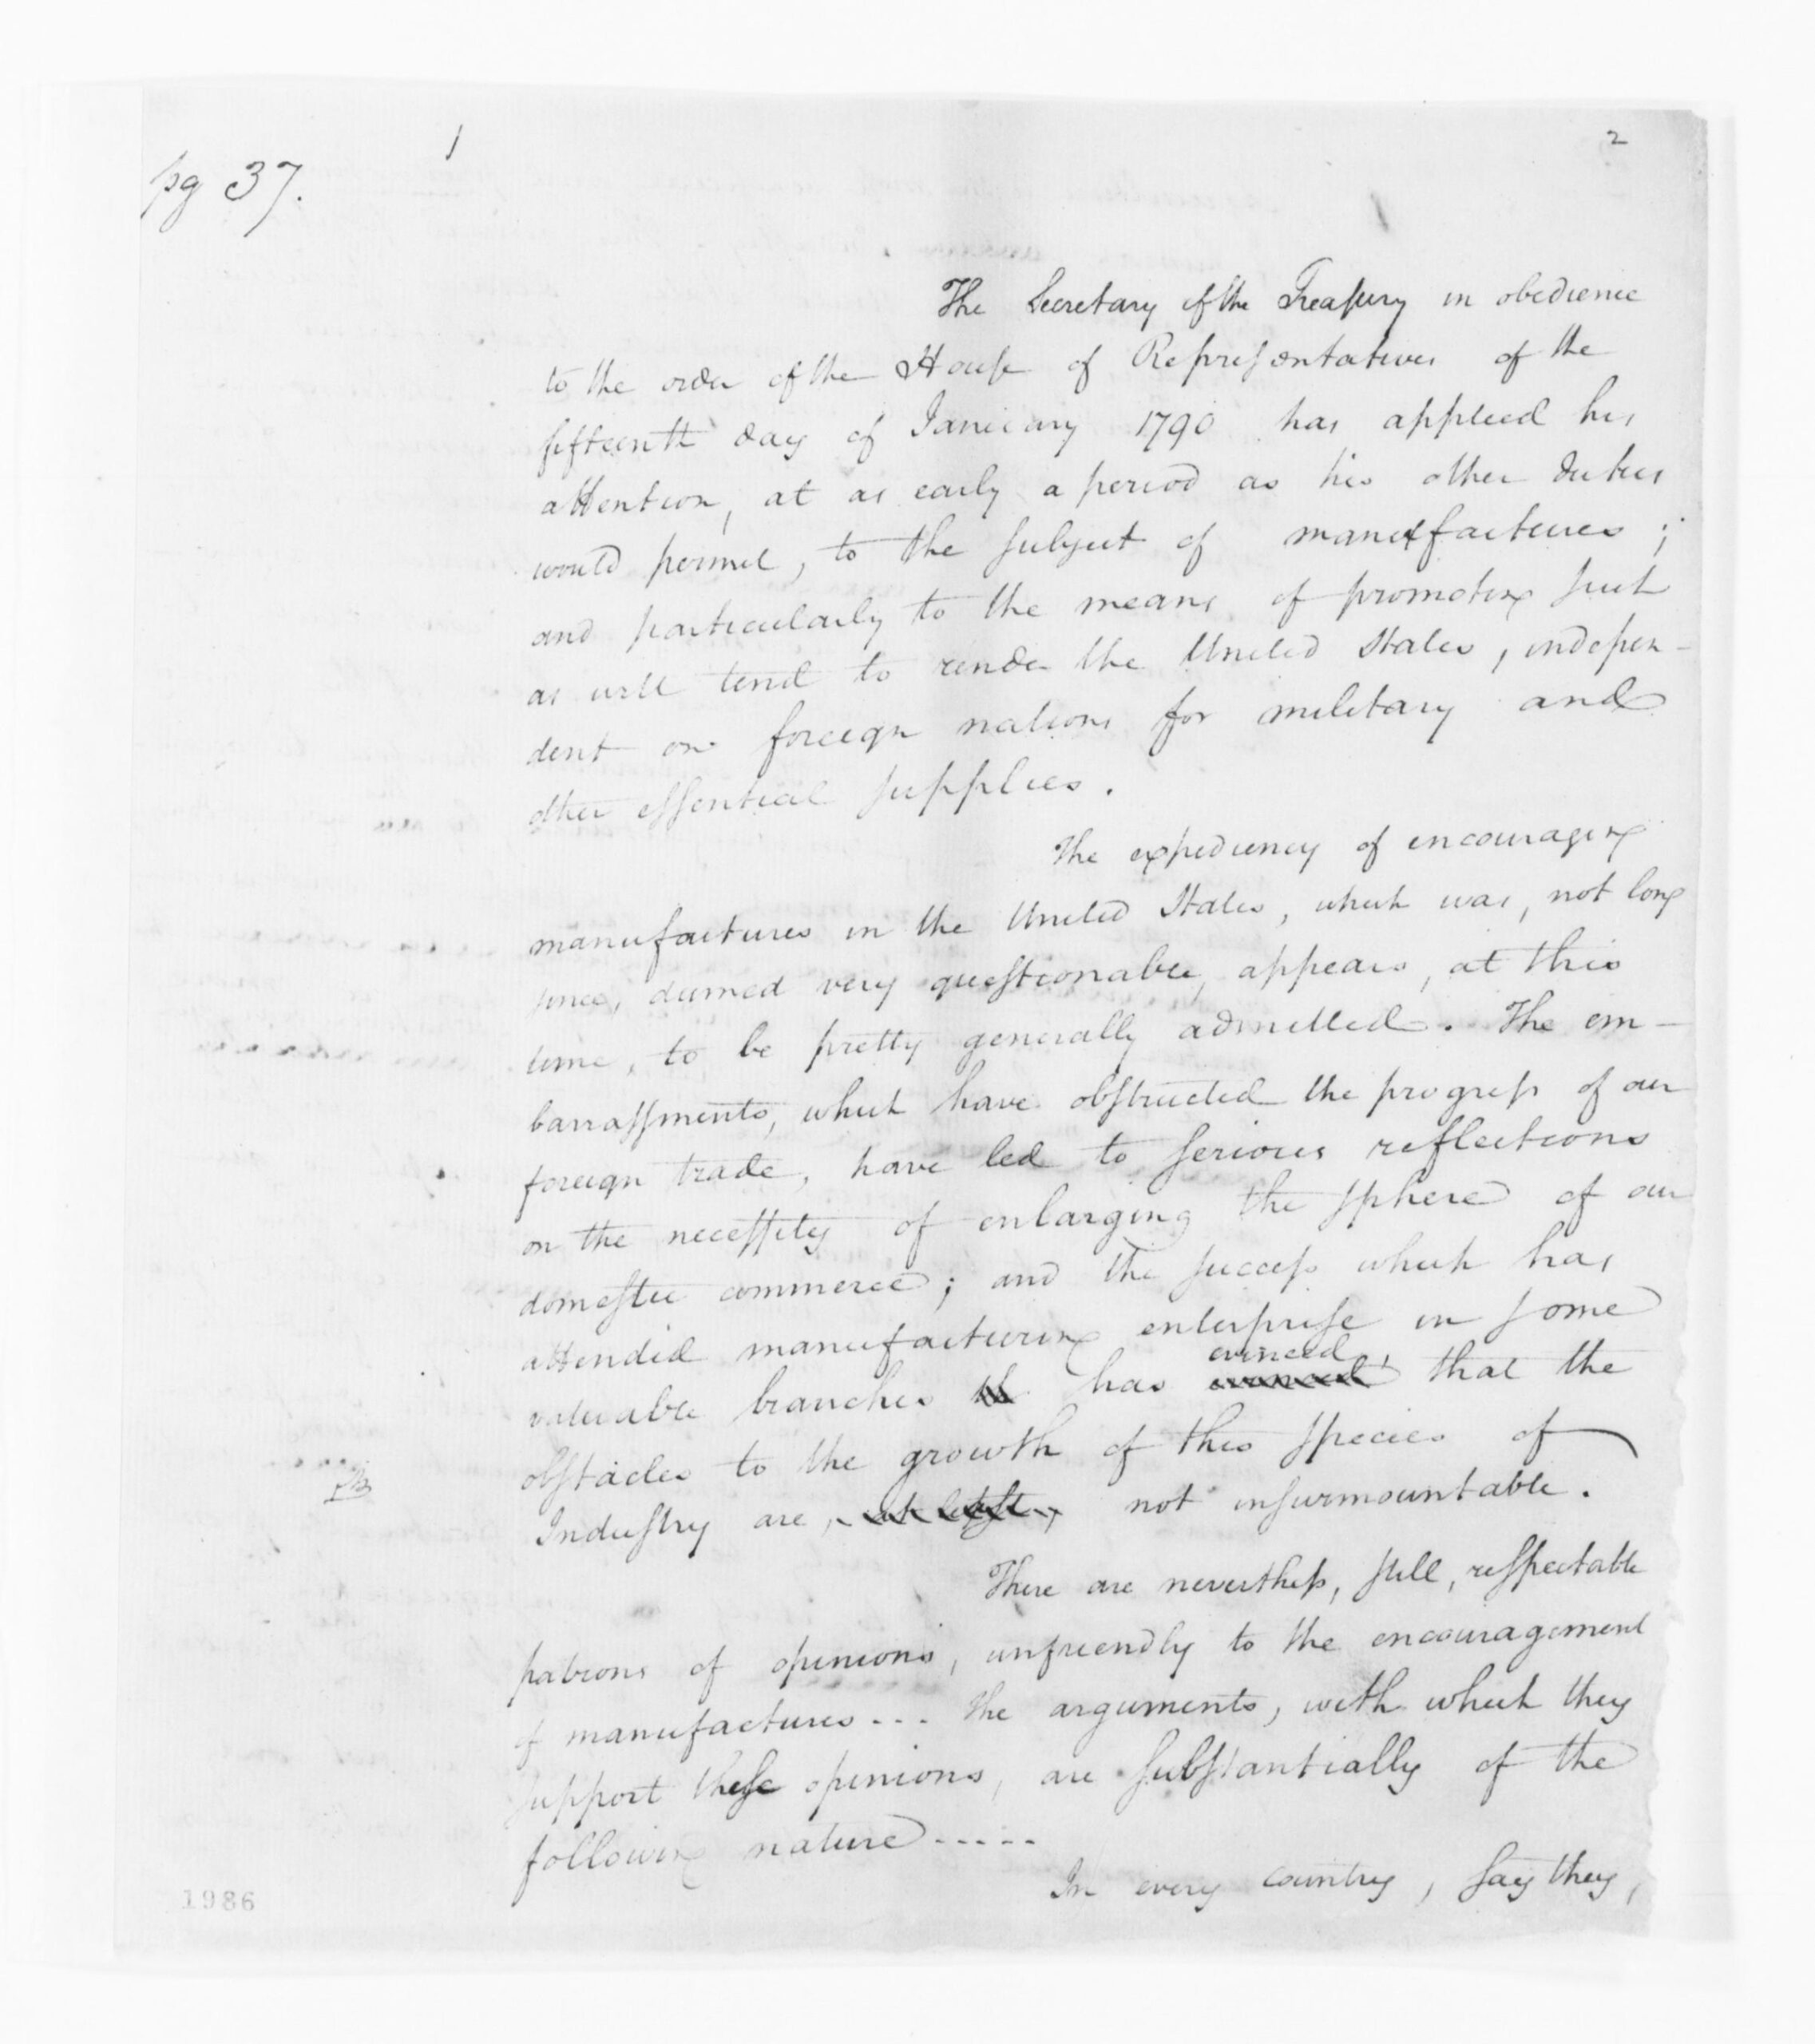 pg 37.
1
2
The Secretary of the Treasury in obedience
to the order of the House of Representatives of the
fifteenth day of January 1790 has applied his
attention, at as early a period as his other duties
would permit, to the subject of manufactures;
and particularly to the means of promoting such
as will tend to render the United States, indepen-
dent on foreign nations for military and
other essential supplies.
The expediency of encouraging
manufactures in the United States, which was, not long
since, deemed very questionable, appears, at this
time, to be pretty generally admitted. The em-
barrassments, which have obstructed the progress of our
foreign trade, have led to serious reflections
on the necessity of enlarging the sphere of our
domestic commerce; and the success which has
attended manufacturing enterprise in some
evinced,
valuable branches has that the
obstacles to the growth of this species of
Industry are, at least, not insurmountable.
There are neverthess, still, respectable
patrons of opinions, unfriendly to the encouragement
of manufactures... The arguments, with which they
support these opinions, are substantially of the
following nature.....
In every country, say they,
1986